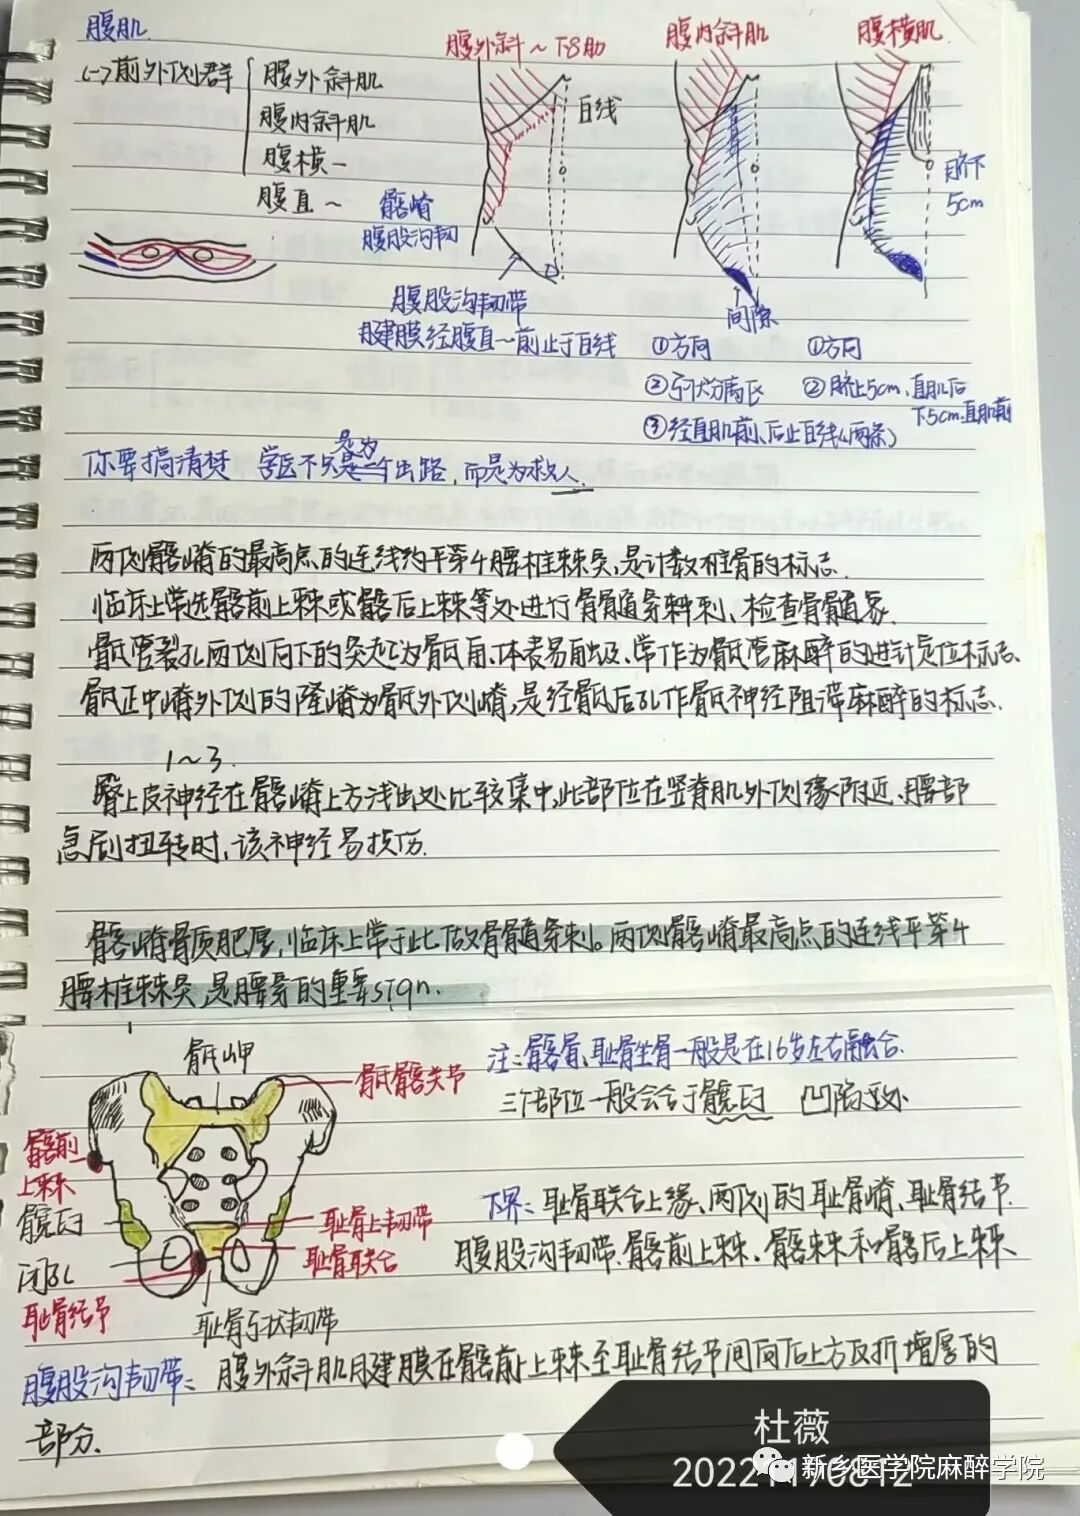 腹肌
(一)前外侧群
腹外斜肌
腹内斜肌
腹横一
腹直～
髂嵴
腹股沟韧
腹外斜～下8肋
白线
腹股沟韧带
腱膜经腹直～前止于白线
腹内斜肌
间隙
①方向
②弓状分离区
③经直肌前、后止白线(两条)
腹横肌
脐下
5cm
①方向
②脐上5cm、直肌后
下5cm.直肌前
你要搞清楚 学医不只是为一个出路,而是为救人.
两侧髂嵴的最高点的连线约平第4腰椎棘突,是计数椎骨的标志.
临床上常选髂前上棘或髂后上棘等处进行骨髓穿刺、检查骨髓象.
骶管裂孔两侧向下的突起为骶角、体表易触及、常作为骶管麻醉的进针定位标志.
骶正中嵴外侧的隆嵴为骶外侧嵴,是经骶后孔作骶神经阻滞麻醉的标志.
1～3.
臀上皮神经在髂嵴上方浅出处比较集中,此部位在竖脊肌外侧缘附近、腰部
急剧扭转时,该神经易损伤.
髂嵴骨质肥厚,临床上常于此做骨髓穿刺。两侧髂嵴最高点的连线平第4
腰椎棘突,是腰穿的重要sign.
骶岬
骶髂关节
髂前
上棘
髋臼
闭孔
耻骨结节
耻骨上韧带
耻骨联合
耻骨弓状韧带
注:髂骨、耻骨坐骨一般是在16岁左右融合.
三个部位一般会合于髋臼 凹陷
下界:耻骨联合上缘、两侧的耻骨嵴、耻骨结节.
腹股沟韧带.髂前上棘、髂棘和髂后上棘
腹股沟韧带:腹外斜肌腱膜在髂前上棘至耻骨结节间向后上方反折增厚的
部分.
杜薇
新乡医学院麻醉学院